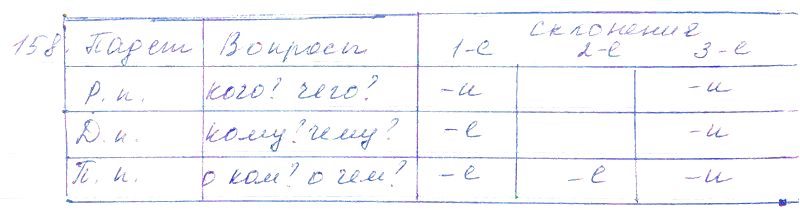 158. Падеж Вопросы Склонение
1-е 2-е 3-е
Р. п. кого? чего? -и -и
Д. п. кому? чему? -е -и
П. п. о ком? о чем? -е -е -и